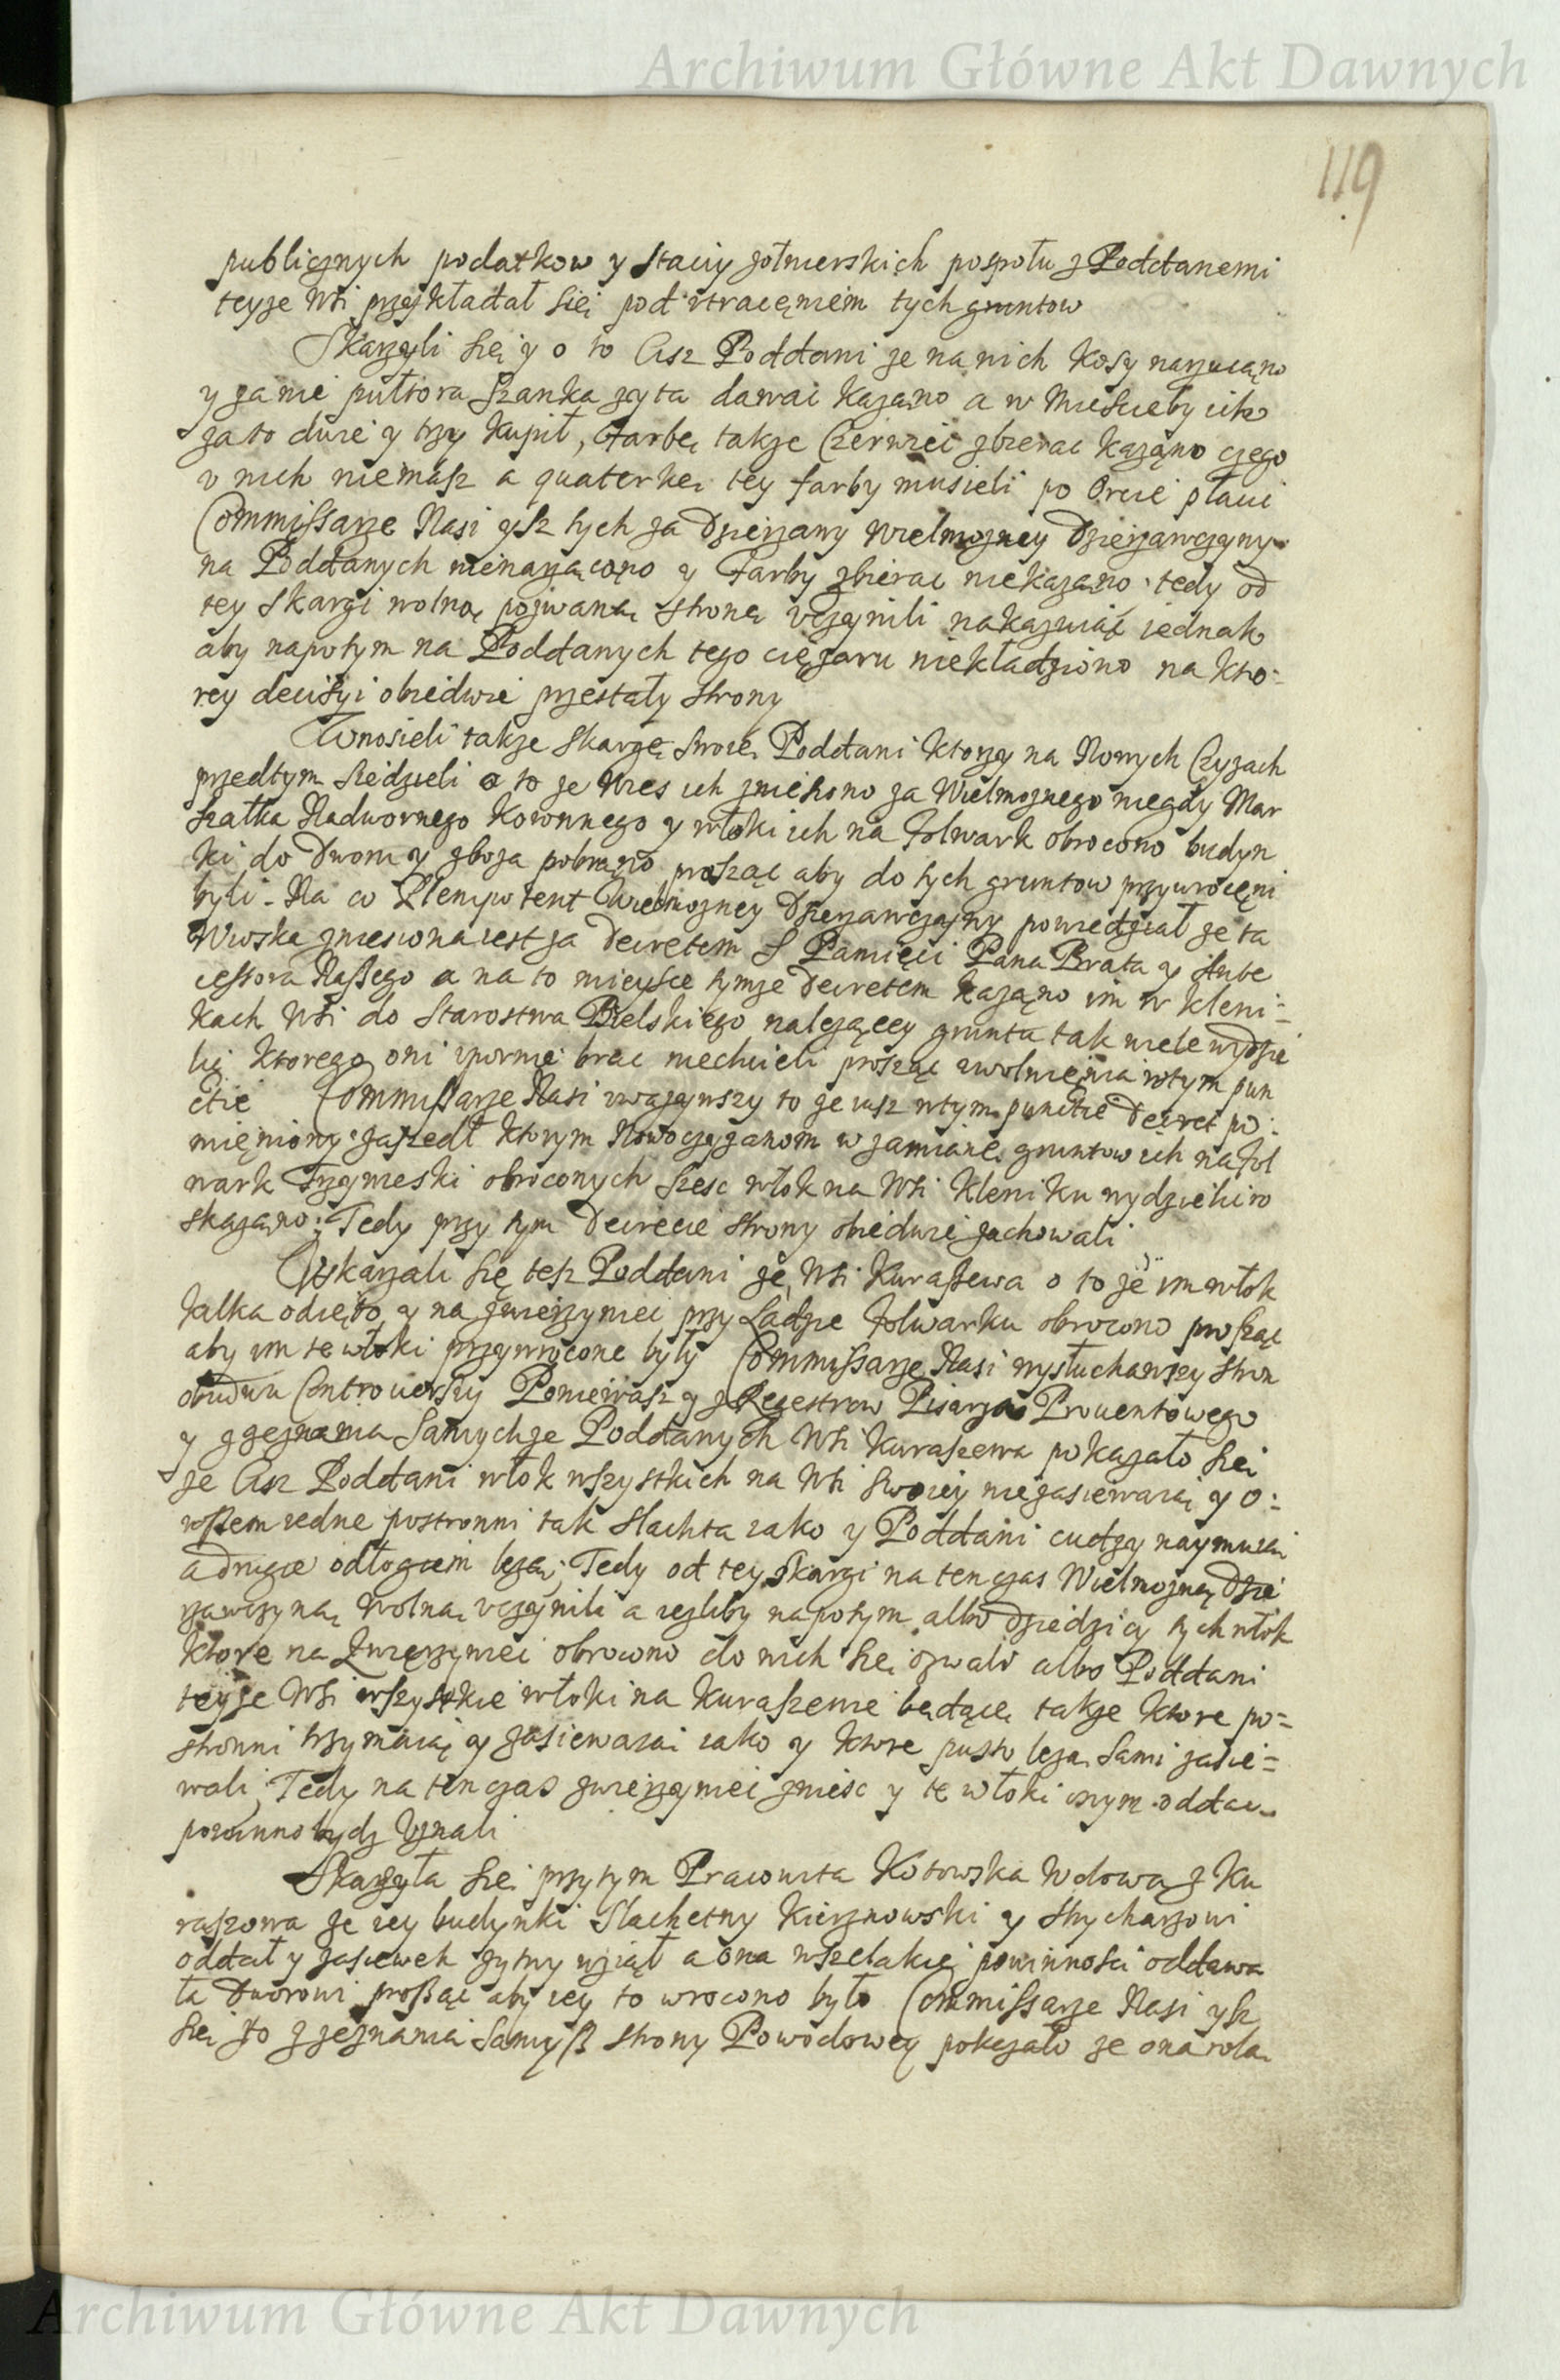 Archiwum Główne Akt Dawnych
119
publicznych podatkow y Staciy żołnierskich pospołu z Poddanemi
teyze Wsi przykładał się pod vtracęniem tych gruntow
Skarzyli się y o to Cisz Poddani ze na nich Kosy narzucąno
y za nie pułtora Szanka zyta dawać kazano a w Miescieby ich
za to dwie y trzy kupił, Farbę także Czerwiec zbierac kaząno czego
v nich niemasz a quaterkę tey farby musieli po Orcie płacić
Commissarze Nasi ysz tych za Dzierzawy Wielmozney Dzierzawczyny
na Poddanych nienarzucąno y Farby zbierac niekazano tedy od
tey Skargi wolną pozwaną Stronę vczynili nakazuiąc iednak
aby napotym na Poddanych tego ciężaru niekładziono na kto-
rey decisyi obiedwie przestały Strony
Wnosieli takze Skargę swoię Poddani ktorzy na Nowych Czyzach
przedtym siedzieli o to ze Wies ich zniesiono za Wielmoznego niegdy Mar
szałka Nadwornego Koronnego y włoki ich na Folwark obrocono budyn
ki do Dworu y zboza pobrąno prosząc aby do tych gruntow przywrocęni
byli. Na co Plenipotent Wielmozney Dzierzawczyny powiedział ze ta
Wioska zniesiona iest za Decretem S Pamięci Pana Brata y Ante
cessora Naszego a na to mieysce tymze Decretem kazano im w Kleni-
kach Wsi do Starostwa Bielskiego nalezącey gruntu tak wiele wydzie
lic ktorego oni vpornie brac niechcieli prosząc vwolnięnia wtym pun
ctie Commissarze Nasi vwazywszy to ze iusz wtym punctie Decret po-
mięniony zaszedł ktorym Nowoczyzanom w zamianę gruntow ich na fol
wark Trzywieski obroconych szesc włok na Wsi Kleniku wydzielić
skazano: Tedy przy tym Decrecie Strony obiedwie zachowali
Vskarzali się tesz Poddani ze Wsi Kuraszewa o to ze im włok
kilka odięto y na zwierzyniec przy Ladzie Folwarku obrocono prosząc
aby im te włoki przywrocone były Commissarze Nasi wysłuchawszy stron
obudwu Controuersiy Poniewasz y z Regestrow Pisarza Prouentowego
y z zeznania Samychze Poddanych Wsi Kuraszewa pokazało się
ze Cisz Poddani włok wszystkich na Wsi Swoiey niezasiewaią y o-
wszem iedne postronni tak Slachta iako y Poddani cudzy naymuią
a drugie odłogiem lezą; Tedy od tey Skargi na ten czas Wielmozną Dzie
rzawczyną wolną vczynili a iezliby napotym albo Dziedzicy tych włok
ktore na Zwierzyniec obrocono do nich się ozwali albo Poddani
teyze Wsi wszystkie włoki na Kuraszewie będące takze ktore po-
stronni trzymaią y zasiewaią iako y ktore pusto lezą Sami zasie-
wali, Tedy na ten czas zwierzyniec zniesc y te włoki onym oddac
powinno bydz Vznali
Skarzyła się przytym Pracowita Kotowska Wdowa z Ku
raszewa ze iey budynki Slachetny Kierznowski y Strycharzowi
oddał y zasiewek zytny wziął a ona wszelakię powinnosci oddawa
ła Dworowi prosząc aby iey to wrocono było Commissarze Nasi ysz
się to z zeznania Samysz Strony Powodowey pokazało ze ona rolą
Archiwum Główne Akt Dawnych